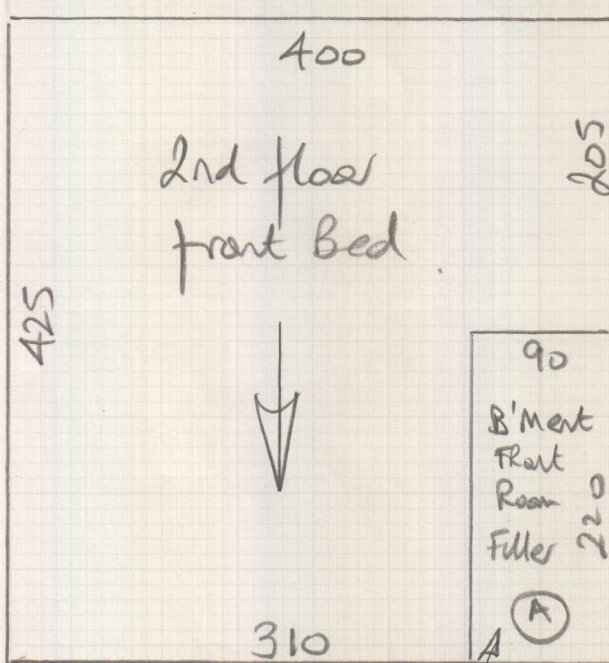 400
2nd floor
front Bed
205
425
90
B'Ment
FRont
Room
Filler
220
A
310